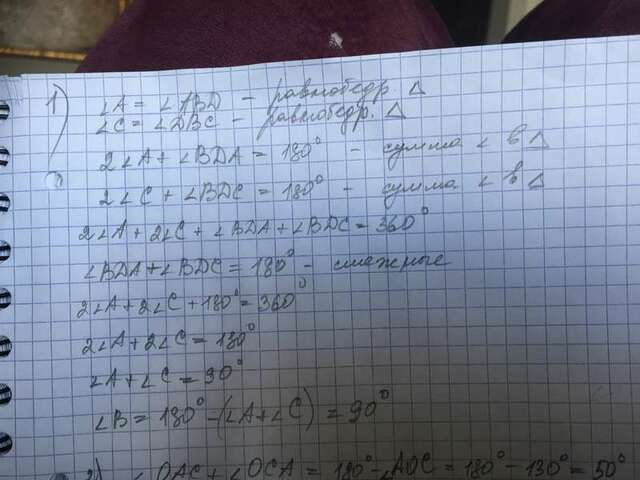 1) ∠A = ∠ABD - равнобедр. Δ
∠C = ∠DBC - равнобедр. Δ
2∠A + ∠BDA = 180° - сумма ∠ в Δ
2∠C + ∠BDC = 180° - сумма ∠ в Δ
2∠A + 2∠C + ∠BDA + ∠BDC = 360°
∠BDA + ∠BDC = 180° - смежные
2∠A + 2∠C + 180° = 360°
2∠A + 2∠C = 180°
∠A + ∠C = 90°
∠B = 180° - (∠A + ∠C) = 90°
2) ∠OAC + ∠OCA = 180° - ∠AOC = 180° - 130° = 50°